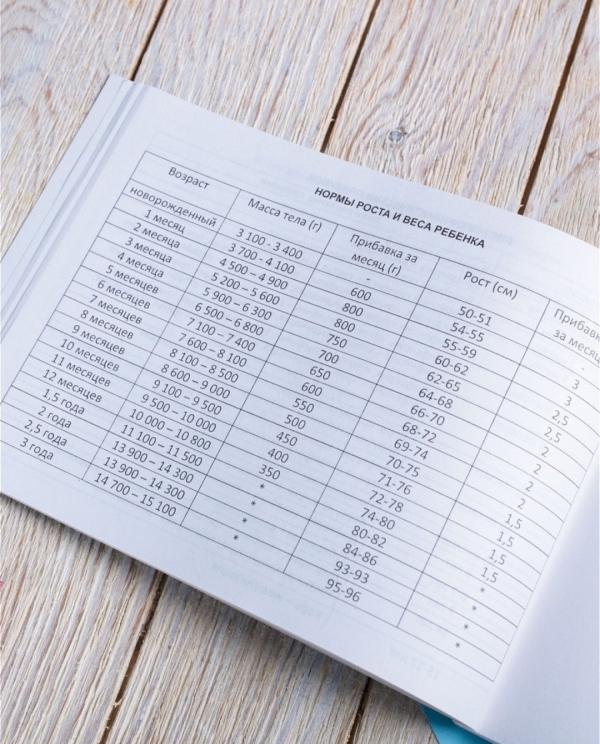 НОРМЫ РОСТА И ВЕСА РЕБЕНКА
Возраст Масса тела (г) Прибавка за месяц (г) Рост (см) Прибавка за месяц
новорожденный 3 100 - 3 400 - 50-51 -
1 месяц 3 700 - 4 100 600 54-55 3
2 месяца 4 500 – 4 900 800 55-59 3
3 месяца 5 200 – 5 600 800 60-62 2,5
4 месяца 5 900 – 6 300 750 62-65 2,5
5 месяцев 6 500 – 6 800 700 64-68 2
6 месяцев 7 100 – 7 400 650 66-70 2
7 месяцев 7 600 – 8 100 600 68-72 2
8 месяцев 8 100 – 8 500 550 69-74 2
9 месяцев 8 600 – 9 000 500 70-75 1,5
10 месяцев 9 100 – 9 500 450 71-76 1,5
11 месяцев 9 500 – 10 000 400 72-78 1,5
12 месяцев 10 000 – 10 800 350 74-80 1,5
1,5 года 11 100 – 11 500 * 80-82 *
2 года 13 900 – 14 300 * 84-86 *
2,5 года 13 900 – 14 300 * 93-93 *
3 года 14 700 – 15 100 * 95-96 *